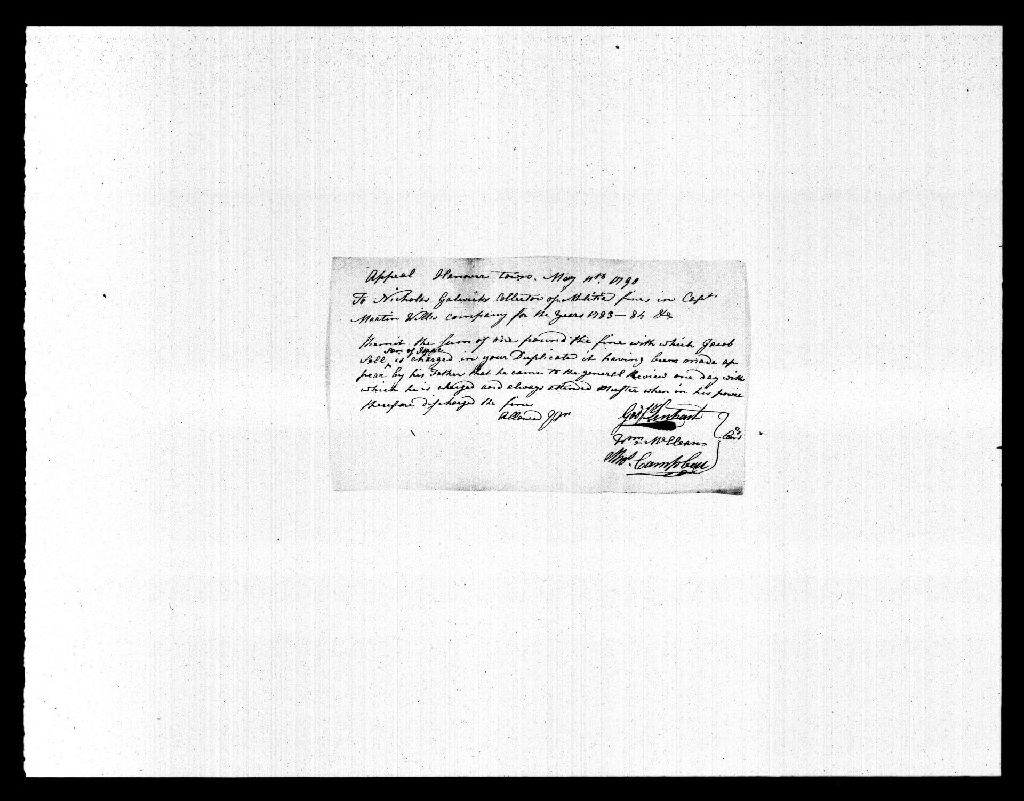 Appeal Hanover town. May 11th 1790
To Nicholas Gelwicks Collector of Militia fines in Capt
Martin Willis company for the Years 1783 - 84 &c
Exonerate the sum of nine pound the fine with which Jacob
son of Isaac
Sell is charged in your Duplicate it having been made ap
pear by his Father that he came to the general Review one day with
which he is charged and always attended Muster when in his power
therefore discharged the fine
Allowed
Lenhart
Wm McClean
Campbell